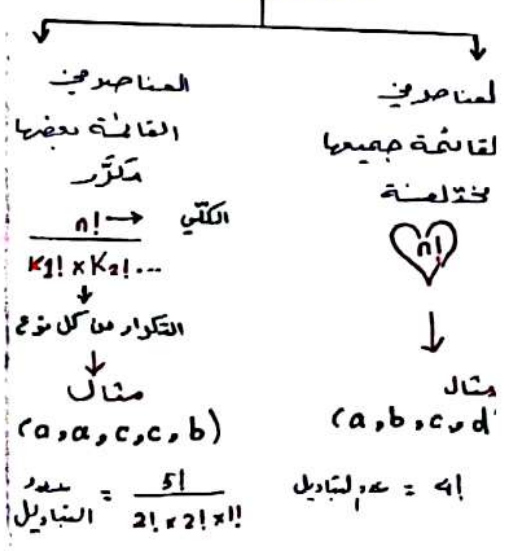 لعناصر في
لقائمة جميعها
مختلفة
n!
مثال
(a, b, c, d
عدد التباديل = 4!
العناصر في
القائمة بعضها
مكرَّر
n! → الكلّي
K1! x K2! ...
التكرار من كل نوع
مثال
(a, a, c, c, b)
عدد التباديل = 5!
2! x 2! x 1!